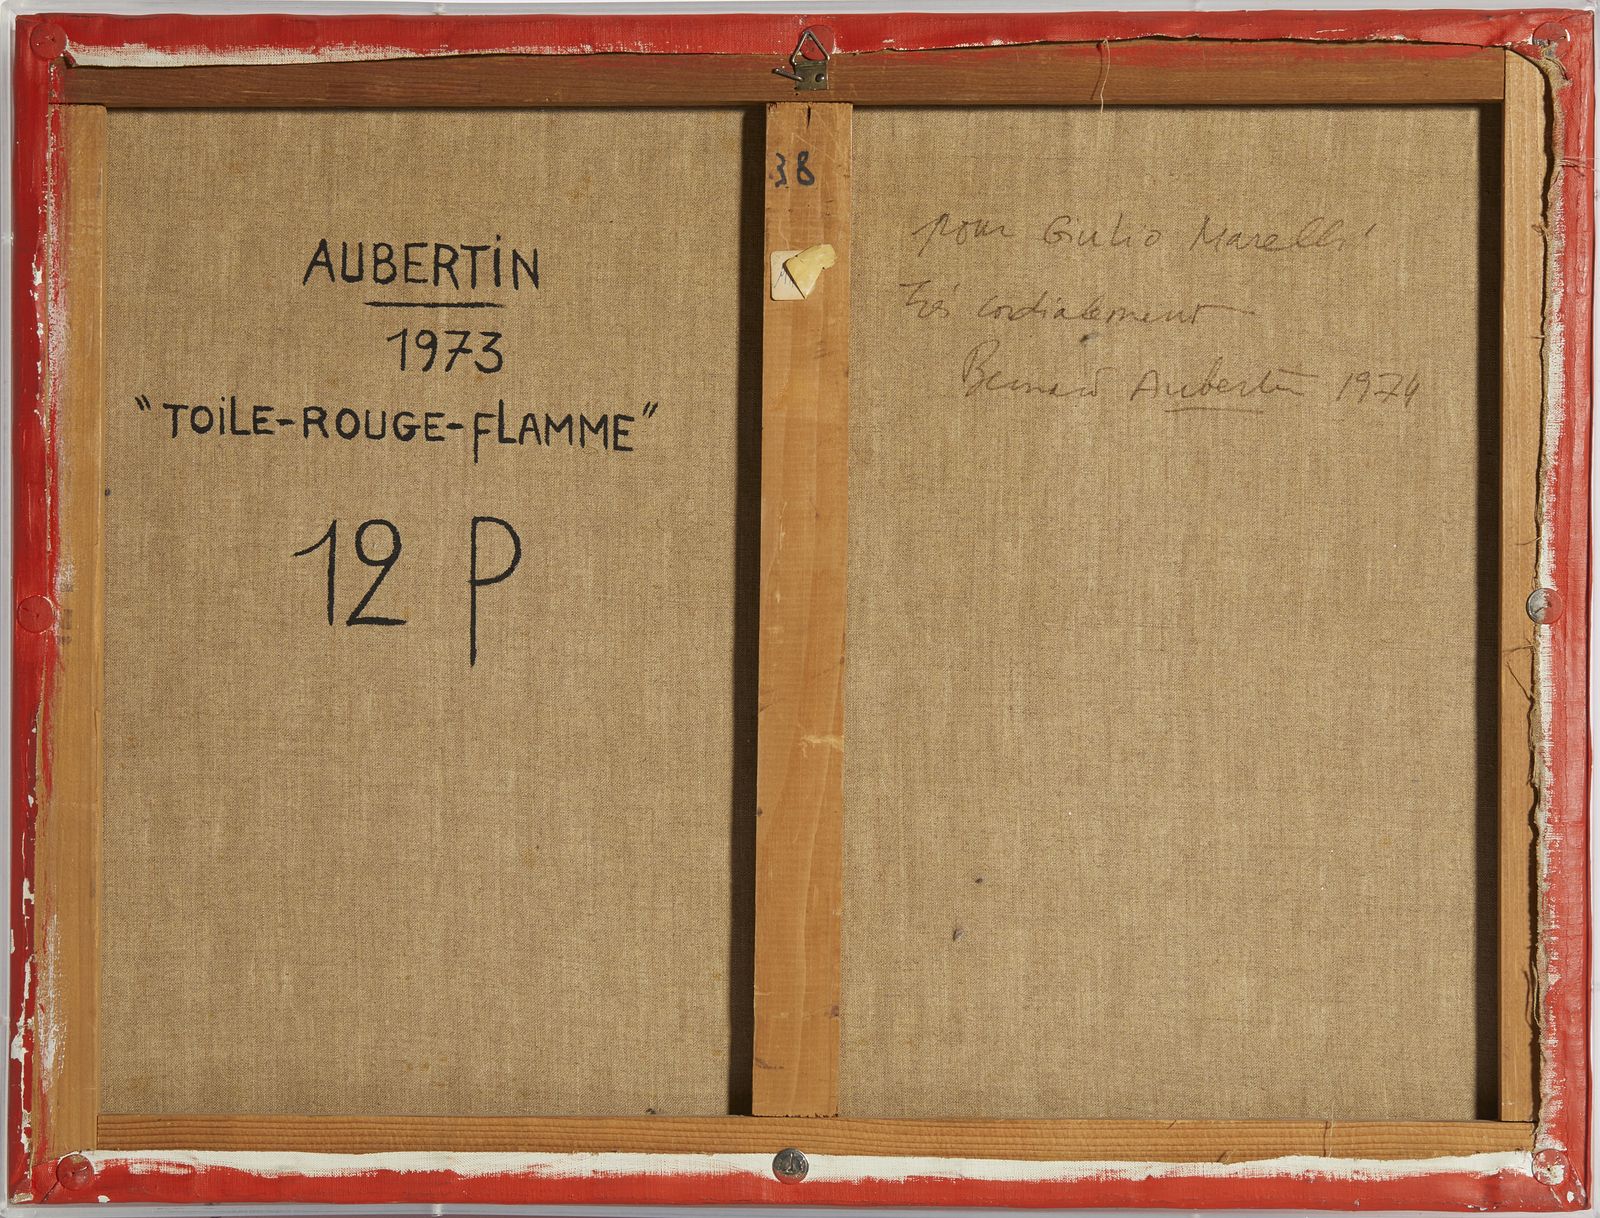 AUBERTiN
1973
"TOiLE-ROUGE-FLAMME"
12 P
38
pour Giulio Marelli
Très cordialement
Bernard Aubertin 1974